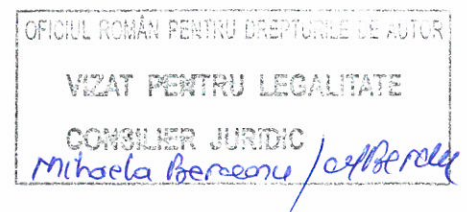 OFICIUL ROMÂN PENTRU DREPTURILE DE AUTOR
VIZAT PENTRU LEGALITATE
CONSILIER JURIDIC
Mihaela Berceanu /